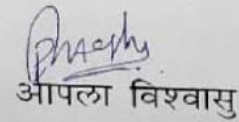 आपला विश्वासु